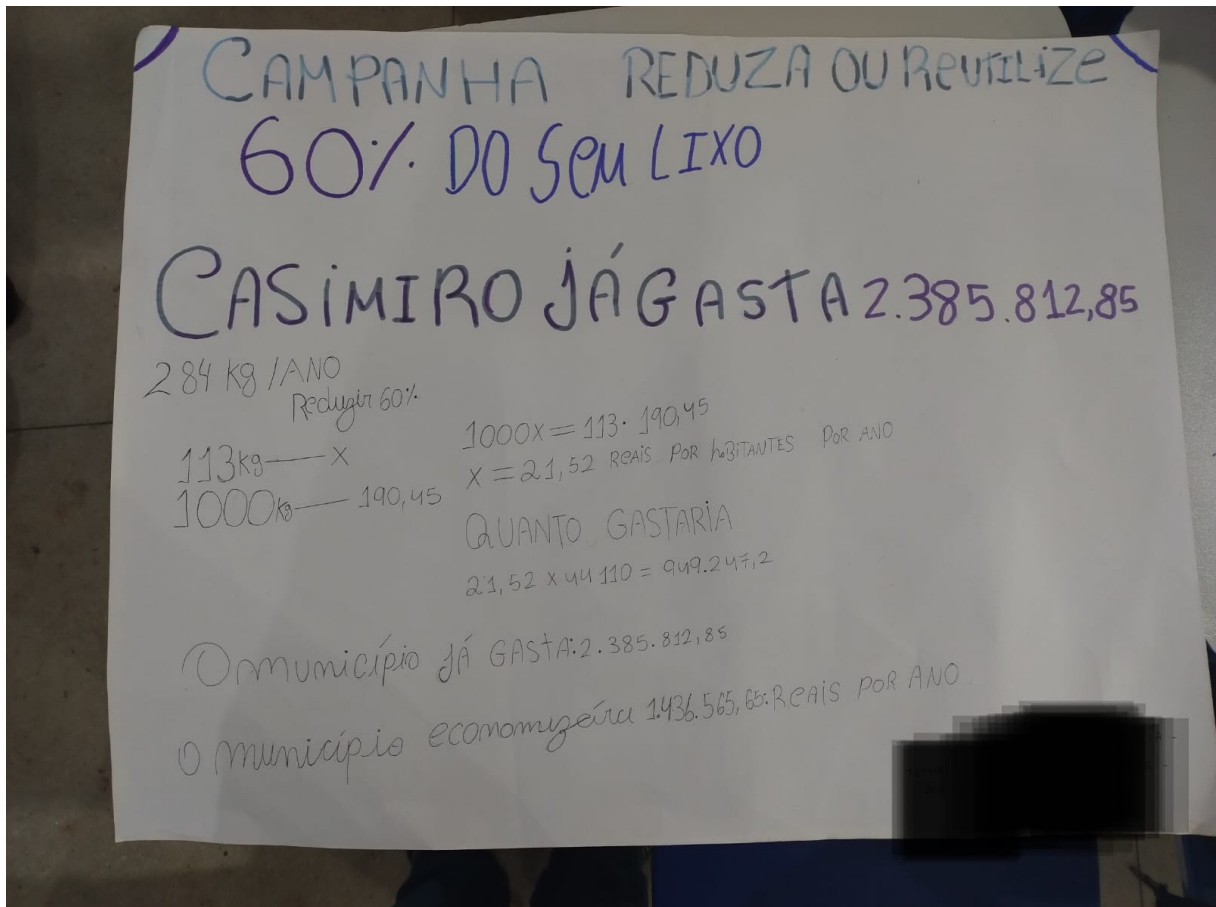 CAMPANHA REDUZA OU ReUTILiZe
60% DO SeU LIXO
CASiMIRO JÁ GASTA 2.385.812,85
284 kg/ANO
Reduzir 60%
113kg — x
1000kg — 190,45
1000x = 113 · 190,45
x = 21,52 ReAiS POR hABITANTES POR ANO
QUANTO GASTARIA
21,52 x 44 110 = 949.247,2
O município JÁ GASTA: 2.385.812,85
O município economizeira 1.436.565,65: ReAiS POR ANO